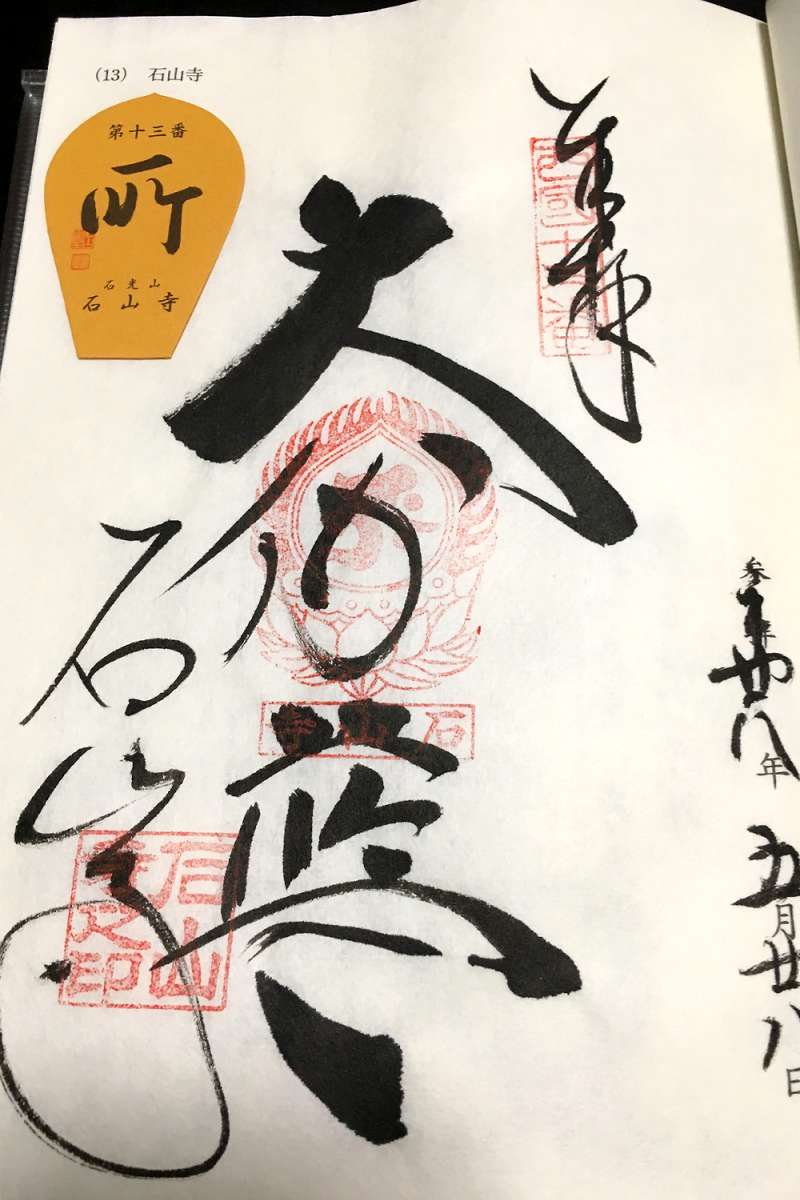 (13) 石山寺
第十三番
石光山
石山寺
奉拝
西國十三番
大伽藍
石山寺
石山寺
石山寺之印
廿八年 五月廿八日